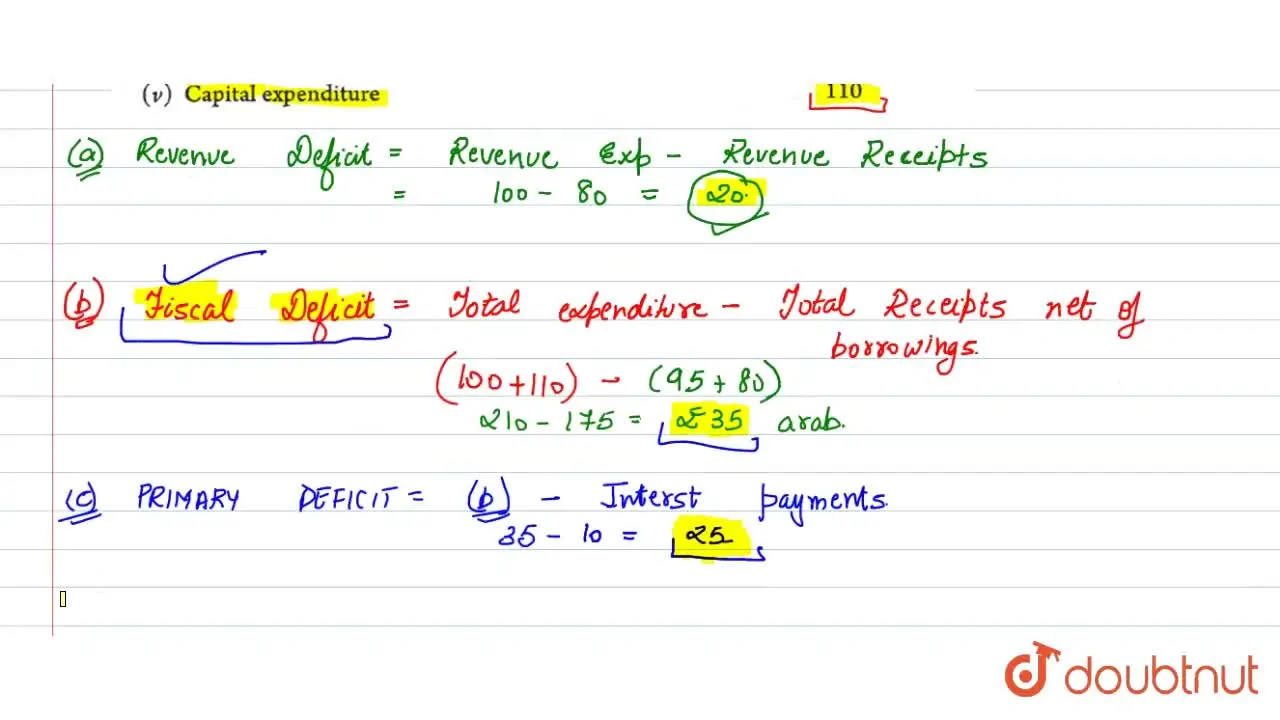 (v) Capital expenditure 110
(a) Revenue Deficit = Revenue Exp - Revenue Receipts
= 100 - 80 = 20.
(b) Fiscal Deficit = Total expenditure - Total Receipts net of
borrowings.
(100 + 110) - (95 + 80)
210 - 175 = 35 arab.
(c) PRIMARY DEFICIT = (b) - Interst payments.
35 - 10 = 25
doubtnut